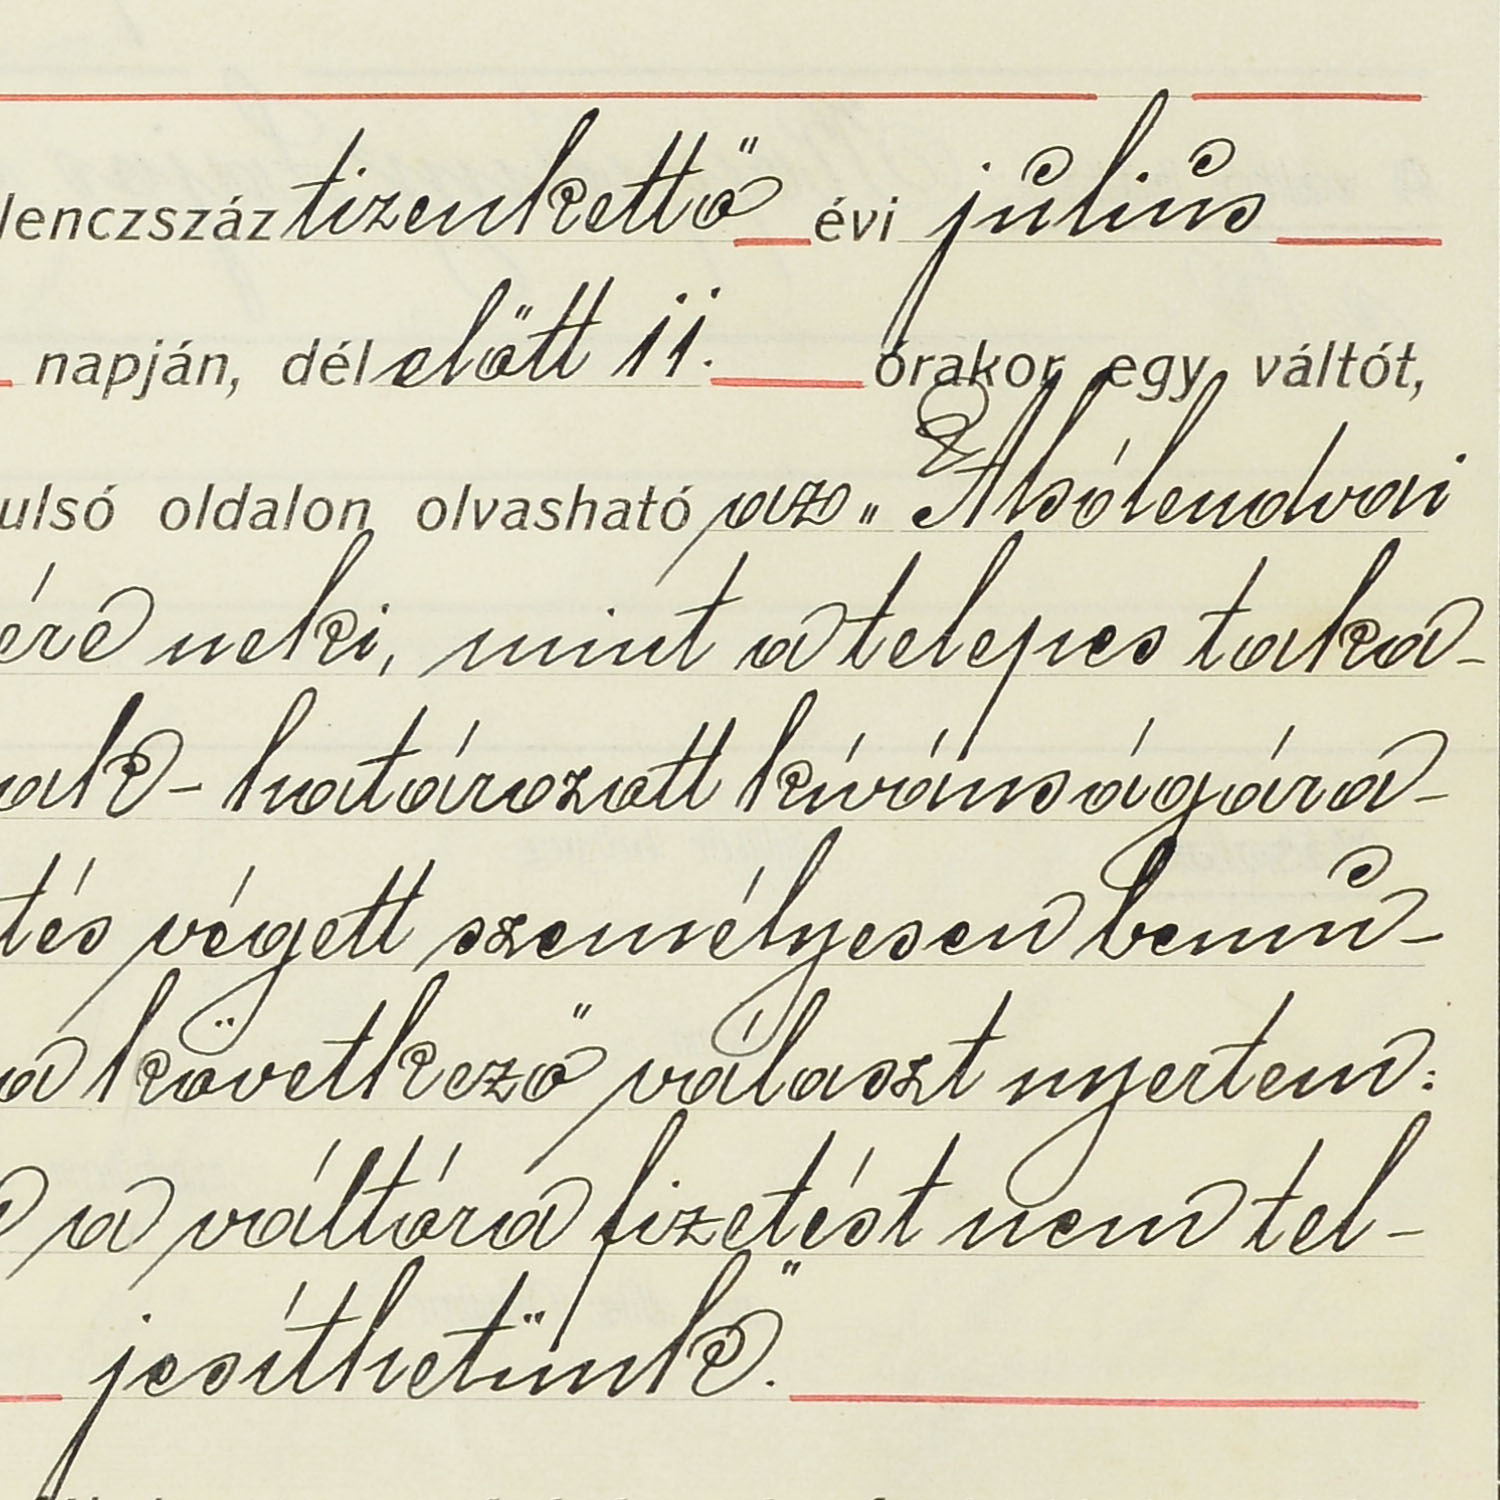 lenczszáz tizenkettő évi július
napján, délelőtt 11. órakor egy váltót,
ulsó oldalon olvasható az „Alsólendvai
éré neki, mint a telepes taka-
ak - határozott kívánságára -
tés végett személyesen bemu-
a következő választ nyertem:
a váltóra fizetést nem tel-
jesíthetünk."